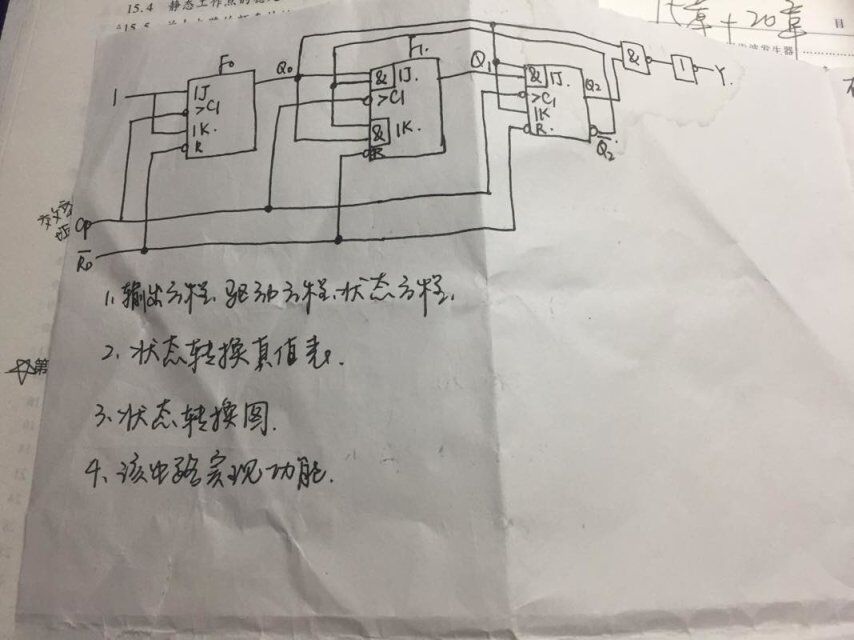 15.4 静态工作点的稳定
15章+20章
目
波发生器
F0
F1.
1
1J
>C1
1K
R
Q0
&
1J.
>C1
&
1K.
R
Q1
&
1J.
>C1
1K
R.
Q2
Q̅2
&
1
Y.
CP
R̅D
第
1、输出方程、驱动方程、状态方程.
2、状态转换真值表.
3、状态转换图.
4、该电路实现功能.